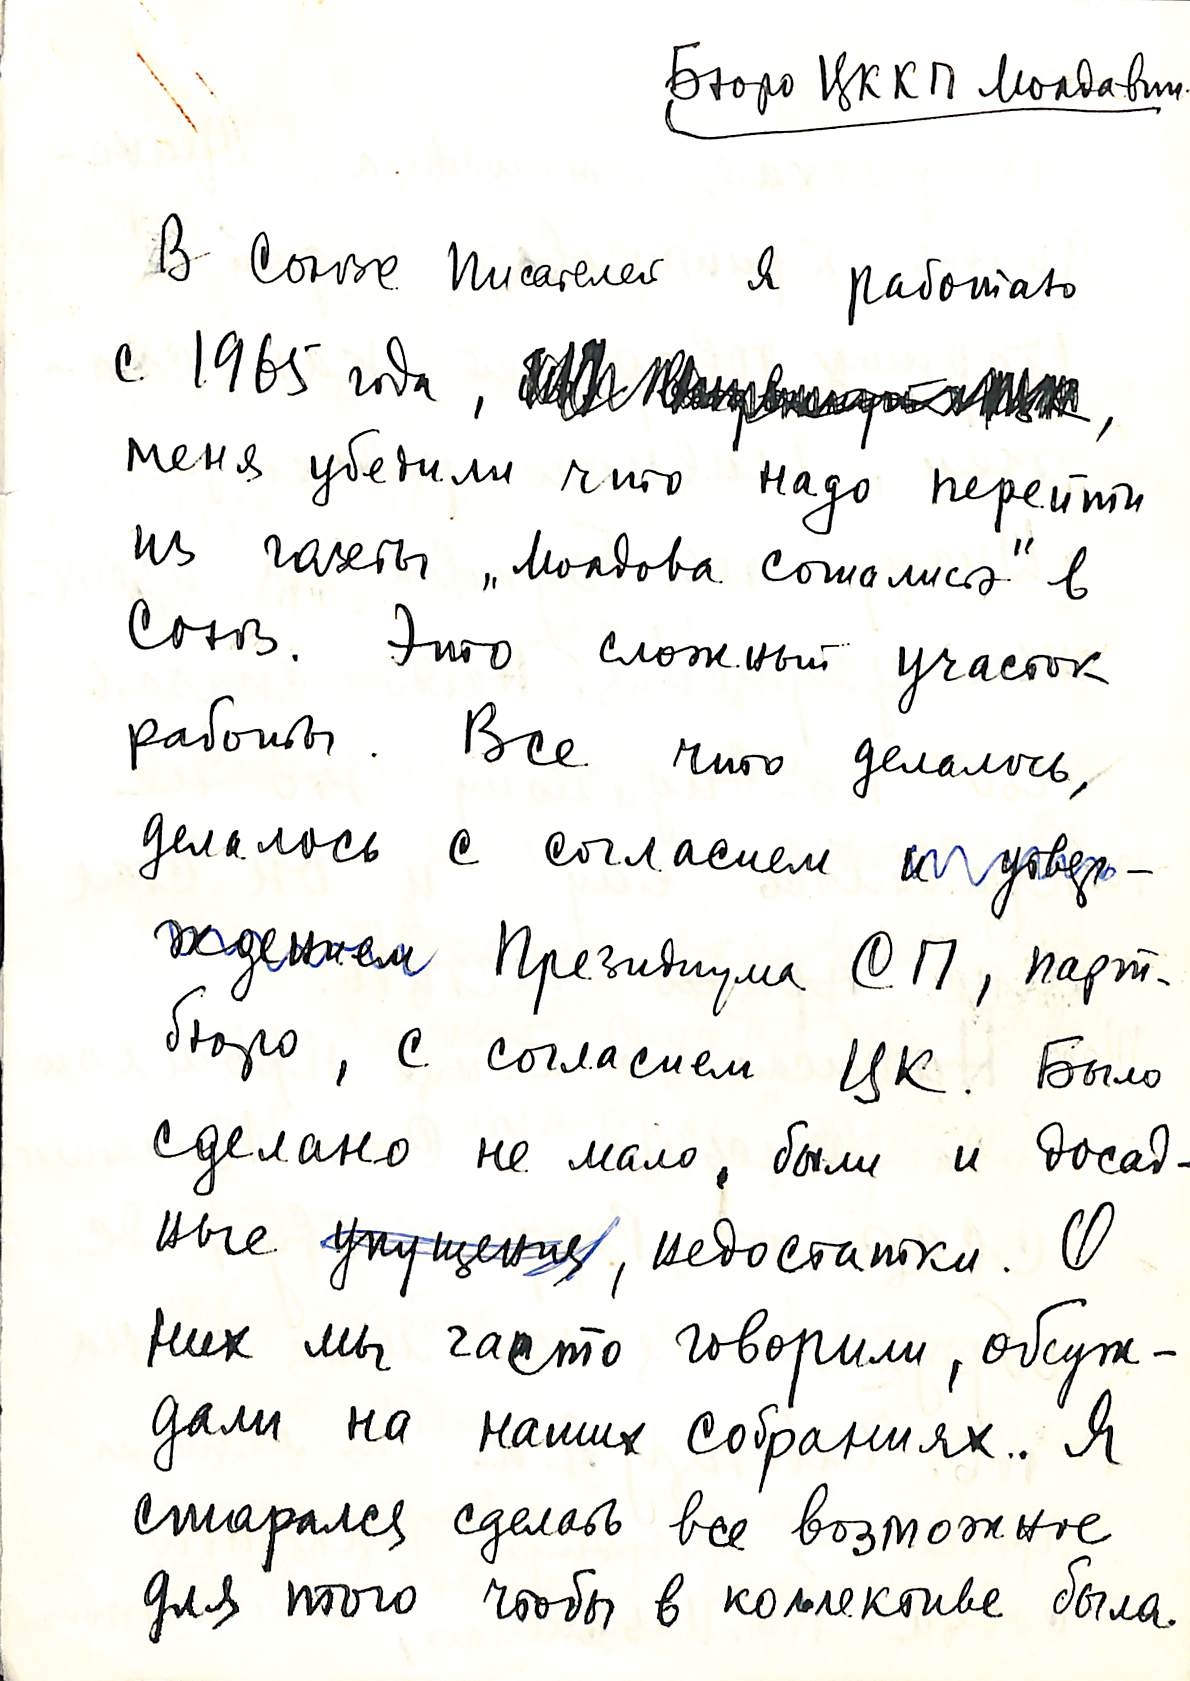 Бюро ЦК КП Молдавии.
В Союзе Писателей я работаю
с 1965 года, ,
меня убедили что надо перейти
из газеты „Молдова сочиалистэ" в
Союз. Это сложный участок
работы. Все что делалось,
делалось с согласием и утвер-
ждением Президиума СП, парт-
бюро, с согласием ЦК. Было
сделано не мало, были и досад-
ные упущения, недостатки. О
них мы часто говорили, обсуж-
дали на наших собраниях.. Я
старался сделать все возможное
для того чтобы в коллективе была